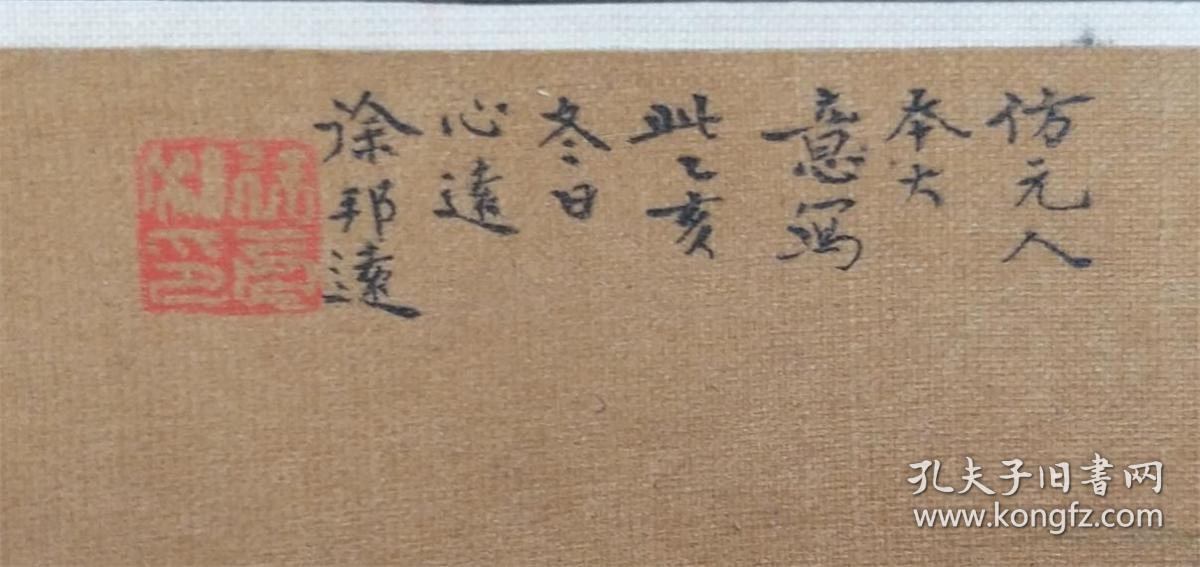 仿元人
本大
意写
此乙亥
冬日
心遠
徐邦遠
孔夫子旧书网
www.kongfz.com